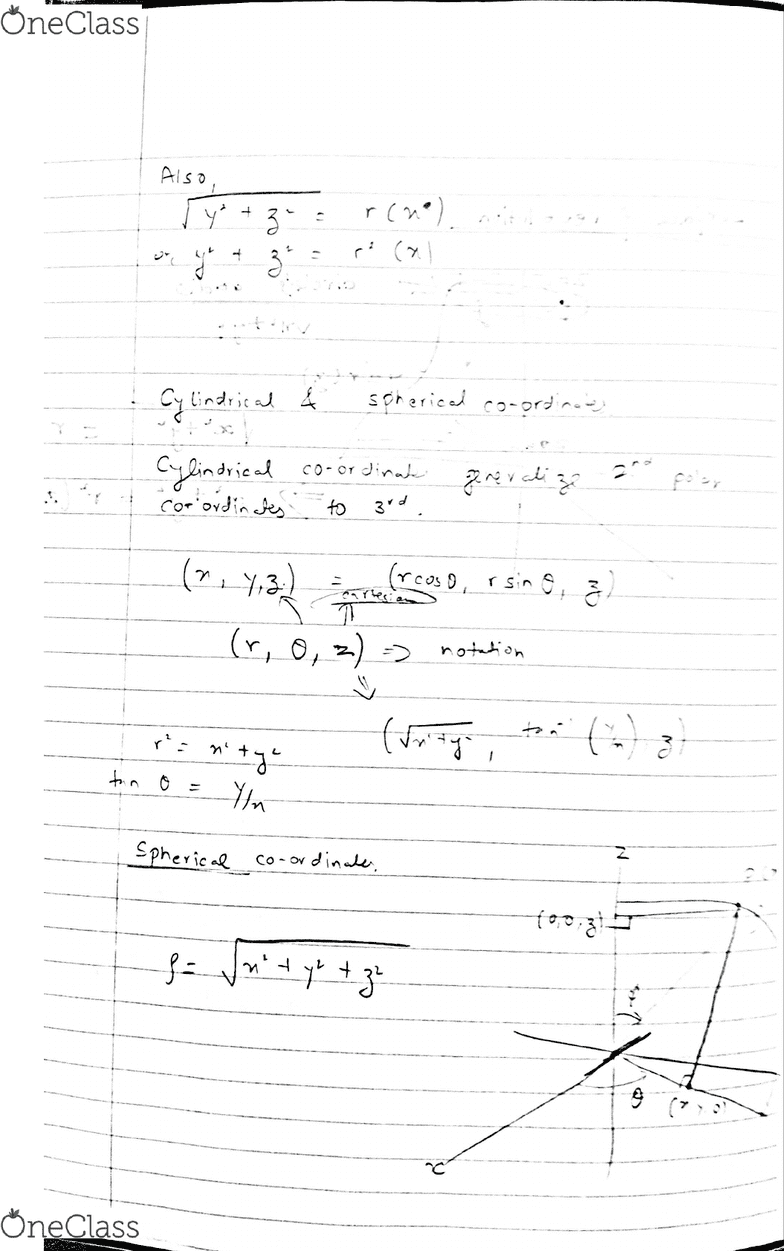 OneClass
Also,
√(y² + z²) = r(x).
or, y² + z² = r²(x)
Cylindrical & spherical co-ordinates
Cylindrical co-ordinate generalize 2nd polar
co-ordinates to 3rd.
(x, y, z) = (r cos θ, r sin θ, z)
cartesian
(r, θ, z) ⇒ notation
(√(x²+y²), tan⁻ (y/x) z)
r² = x² + y²
tan θ = y/x
Spherical co-ordinates.
z
(0,0,z)
ρ = √(x² + y² + z²)
θ
x
OneClass